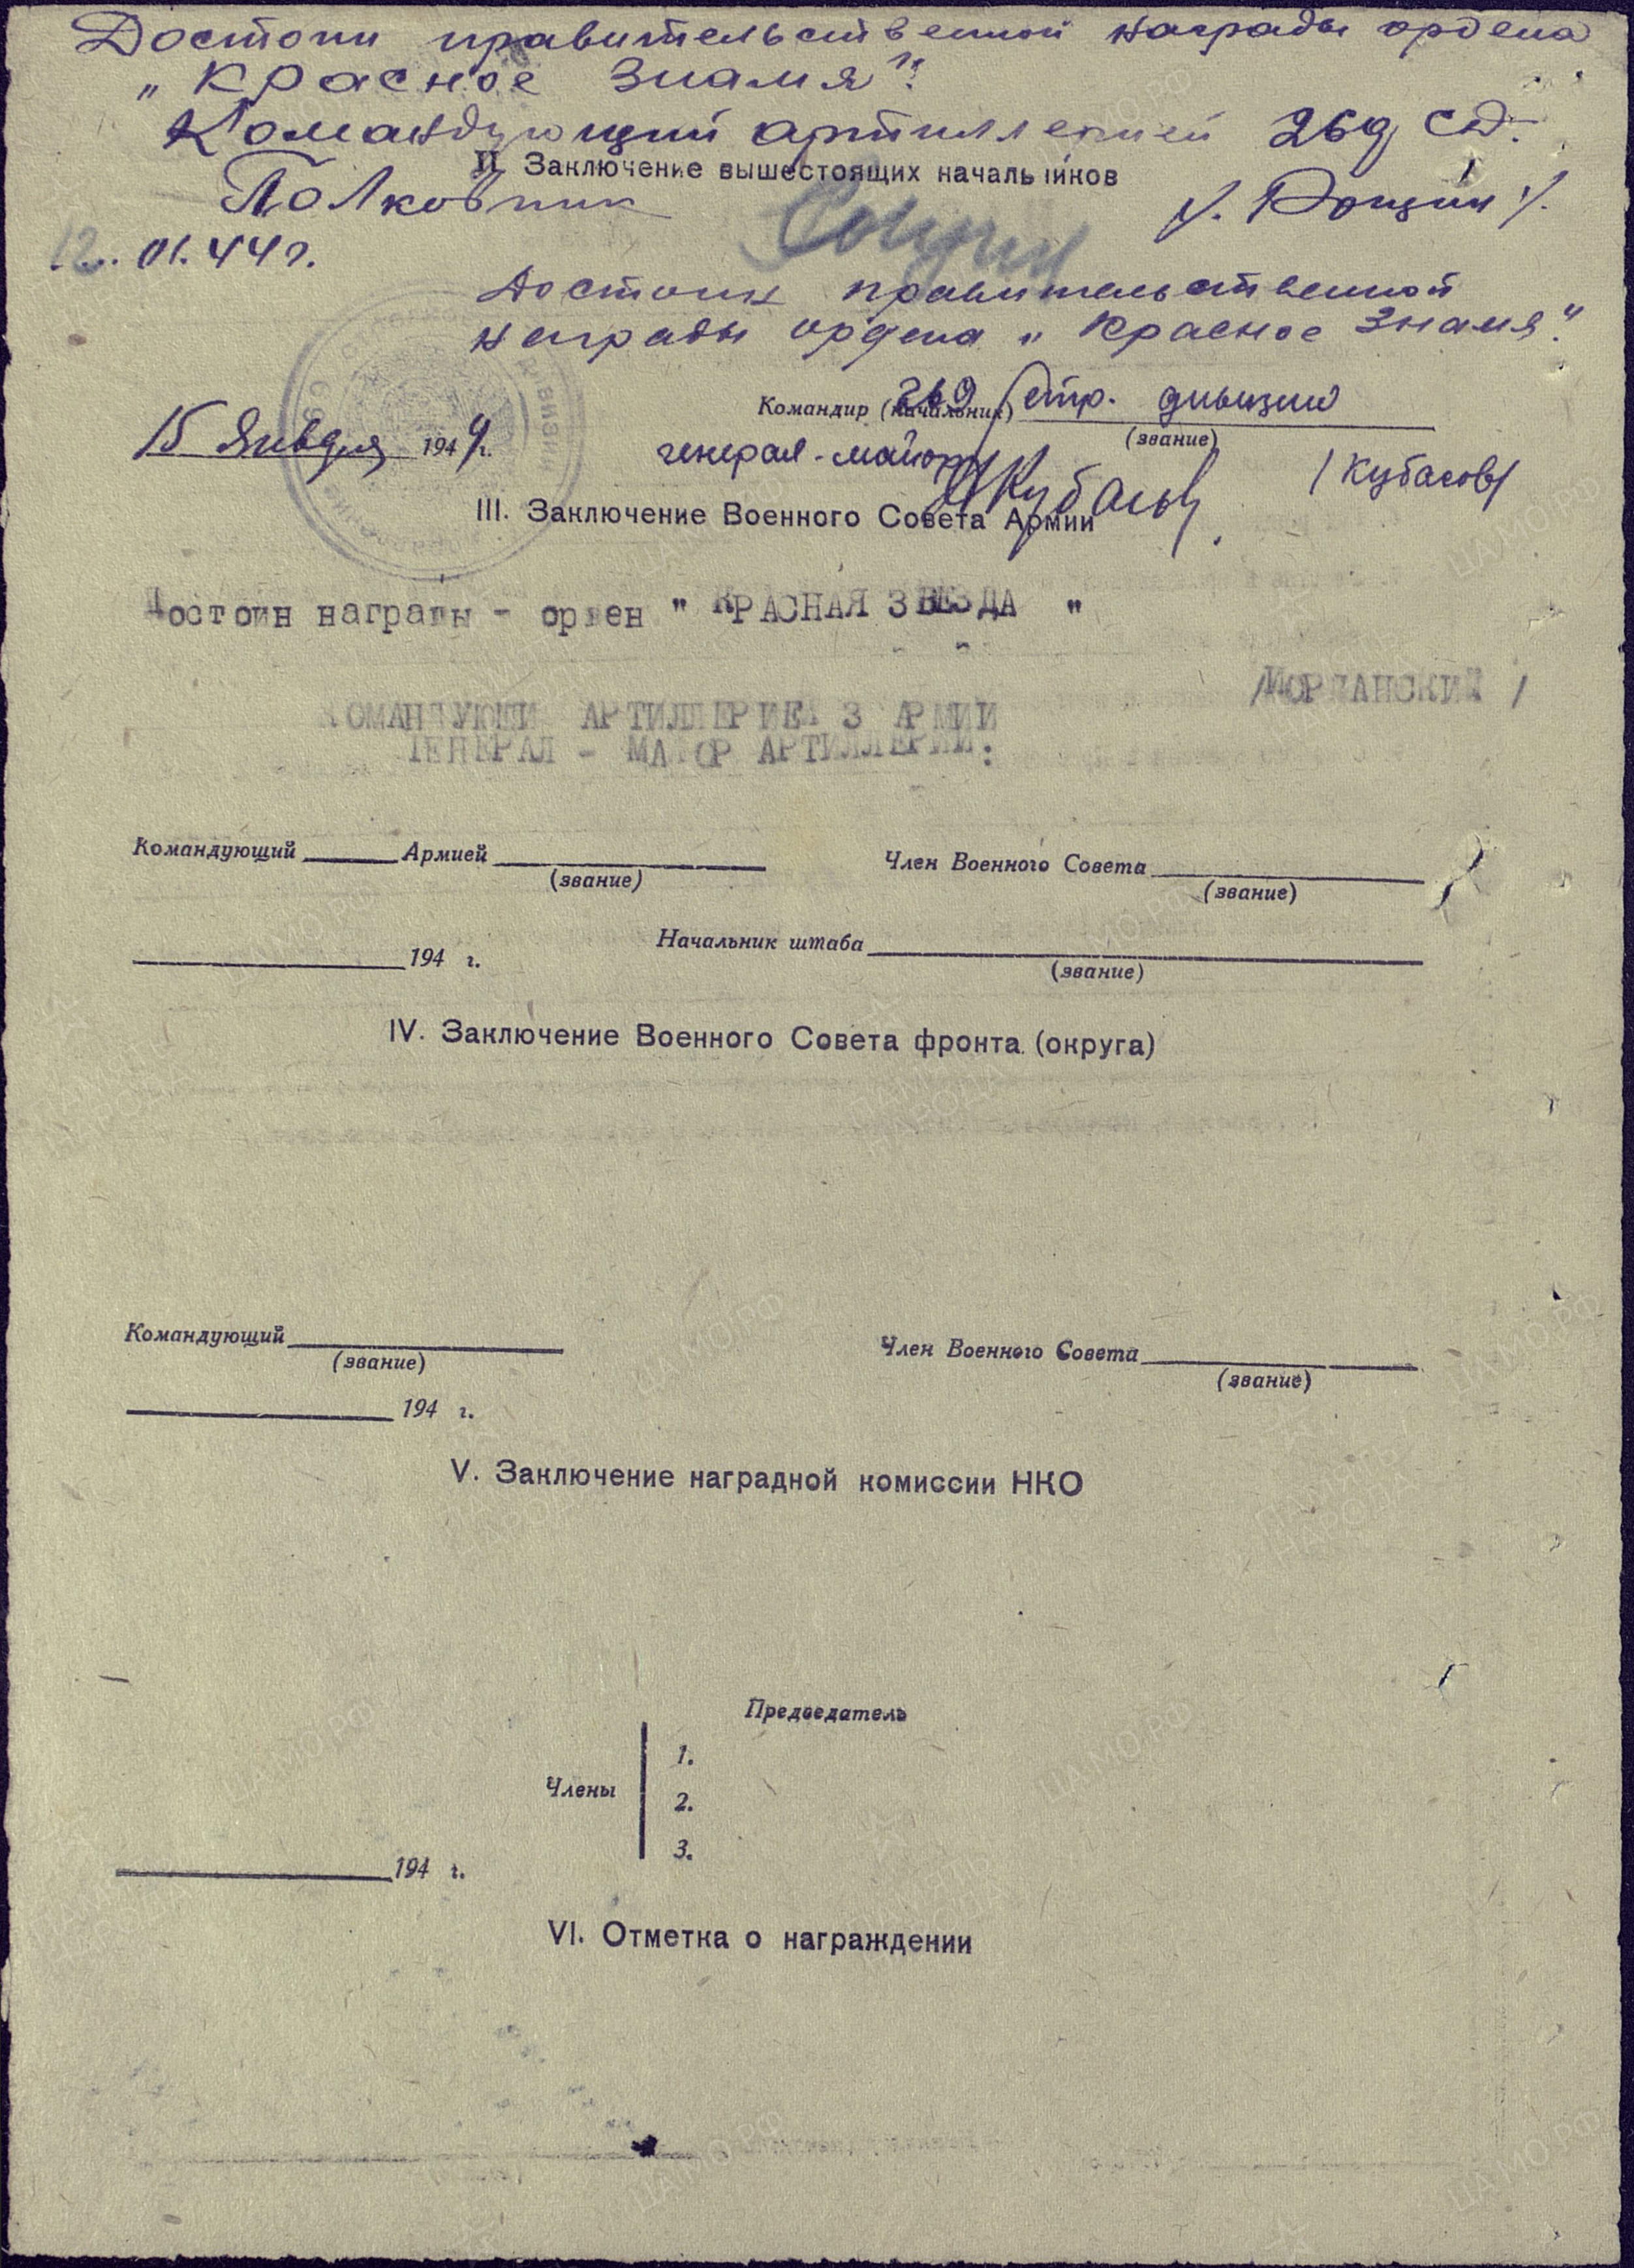 Достоин правительственной награды ордена
„Красное Знамя".
Командующий артиллерией 269 СД.
II Заключение вышестоящих начальников
Полковник /. Рощин /.
12. 01. 44 г.
Достоин правительственной
награды ордена „Красное Знамя".
Командир (начальник) 269 стр. дивизии
(звание)
15 Января 1944 г.
генерал-майор Кубасов /Кубасов/
III. Заключение Военного Совета Армии
Достоин награды - орден " КРАСНАЯ ЗВЕЗДА "
КОМАНДУЮЩИЙ АРТИЛЛЕРИЕЙ 3 АРМИИ
ГЕНЕРАЛ - МАЙОР АРТИЛЛЕРИИ: /ИОРДАНСКИЙ /
Командующий Армией Член Военного Совета
(звание) (звание)
194 г. Начальник штаба
(звание)
IV. Заключение Военного Совета фронта (округа)
Командующий Член Военного Совета
(звание) (звание)
194 г.
V. Заключение наградной комиссии НКО
Председатель
1.
Члены 2.
3.
194 г.
VI. Отметка о награждении